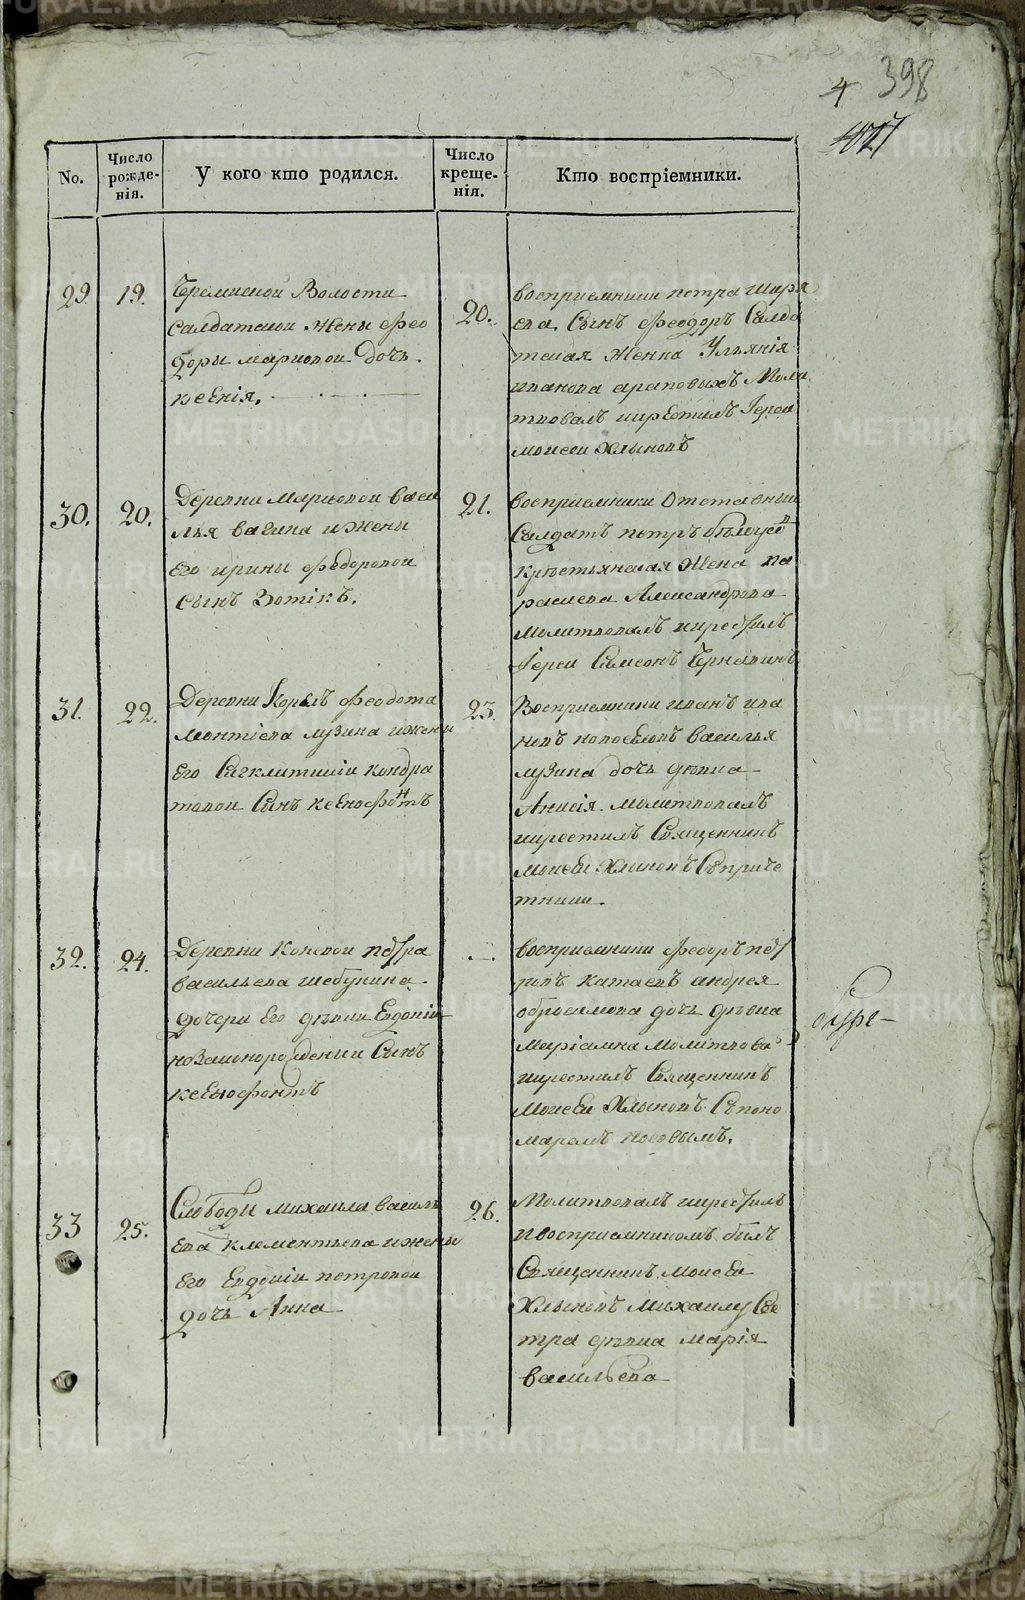 4 398
No.
Число рожде-нія.
У кого кто родился.
Число креще-нія.
Кто воспріемники.
29. 19.
Волости
салдатской жены Фео
доры марковой дочь
ксенія.
20.
восприемники петра
ева, Сынъ Феодоръ Салда
тская женка Ульянія
иванова араповыхъ Моли
твовалъ икрестилъ Іереи
моисеи Хлыновъ
30. 20.
Деревни Марковой васи
лья вагина и жены
Его ирины Федоровой
сынъ Зотікъ.
21.
восприемники Отставныи
Салдатъ петръ
крестьянская жена па
раскева Александрова
Молитвовалъ икрестилъ
Іереи Самсонъ
31. 22.
Деревни Феодота
лузина ижены
Его Сигклитикіи кондра
товой Сынъ ксенофонтъ
23.
Восприемники иванъ ива
новъ василья
лузина дочь девка
Анисія молитвовалъ
икрестилъ Священникъ
моисеи Хлыновъ Съприче
тники.
32. 24.
Деревни Коневой петра
васильева шебунина
дочери Его девки Евдокіи
незаконорожденныи Сынъ
ксенофонтъ
восприемники Федоръ пет
ровъ катаевъ андрея
абросимова дочь девка
Маріамна Молитвова
икрестилъ Священникъ
Моисеи Хлыновъ Съпоно
маремъ носовымъ.
33 25.
Слободы михаила василь
ева клементьева ижены
Его Евдокіи петровой
дочь Анна
26.
Молитвовалъ икрестилъ
ивосприемникомъ былъ
Священникъ Моисеи
Хлыновъ Михаилу Сес
тра девка марія
васильева
METRIKI.GASO-URAL.RU